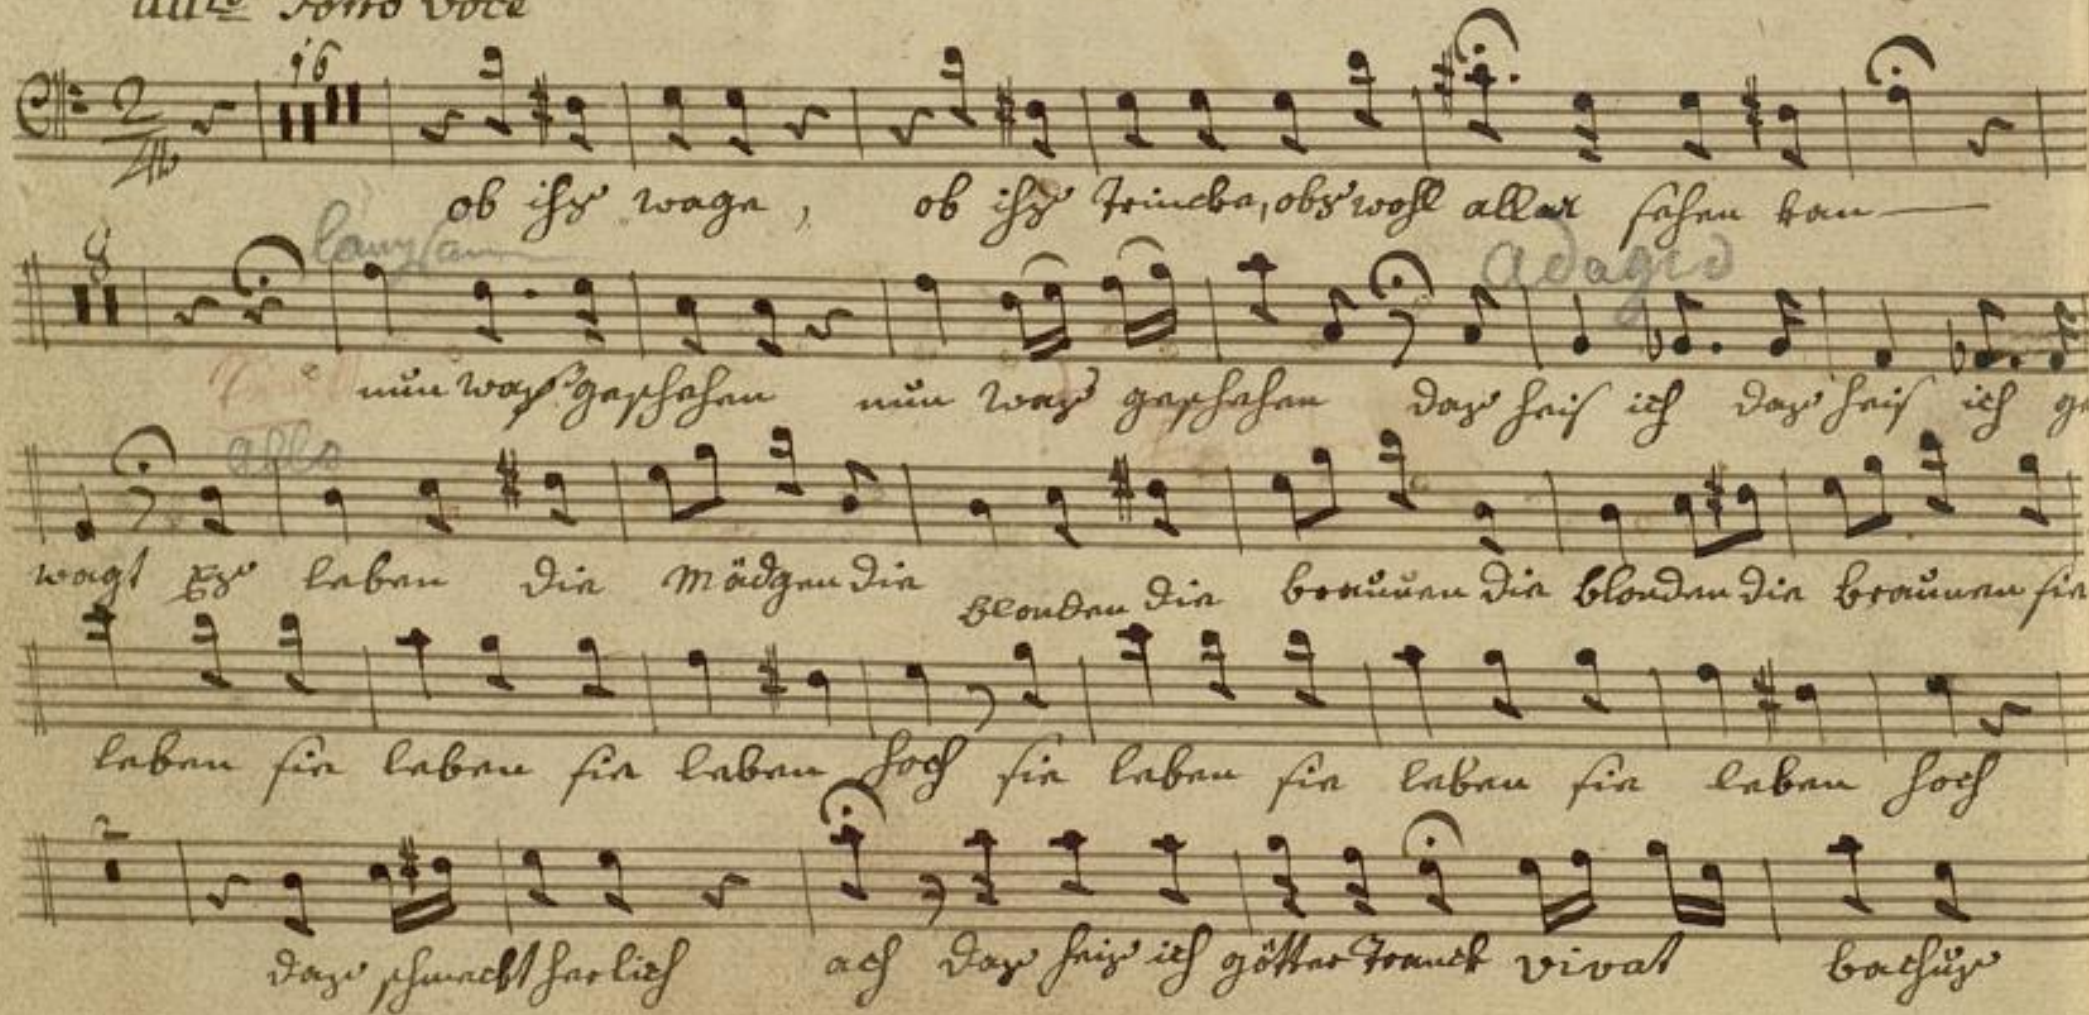 all:o Sotto Voce
16
2/4
ob ihs wage, ob ihs trincke, obs wohl allar sehen kan
8 langsam Adagio
nun was geschehen nun was geschehen das heis ich das heis ich ge
allo
wagt Es leben die Mädgen die blonden die braunen die blonden die braunen sie
leben sie leben sie leben hoch sie leben sie leben sie leben hoch
2
das schmeckt herlich ach das heis ich götter tranck vivat bachus